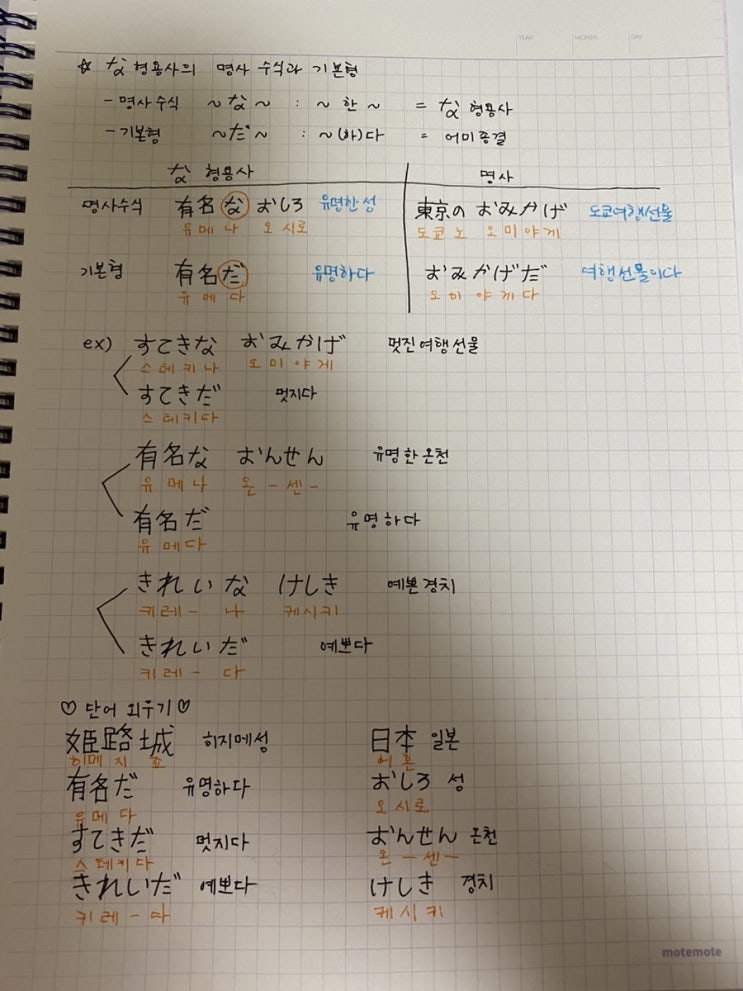 YEAR MONTH DAY
☆ な 형용사의 명사 수식과 기본형
- 명사수식 ~な~ : ~한~ = な 형용사
- 기본형 ~だ~ : ~(하)다 = 어미종결
な 형용사 명사
명사수식 有名な おしろ 유명한 성 東京の おみかげ 도쿄여행선물
유메나 오시로 도쿄노 오미야게
기본형 有名だ 유명하다 おみかげだ 여행선물이다
유메다 오미야게다
ex) すてきな おみかげ 멋진 여행선물
스테키나 오미야게
すてきだ 멋지다
스테키다
有名な おんせん 유명한 온천
유메나 온-센-
有名だ 유명하다
유메다
きれいな けしき 예쁜 경치
키레-나 케시키
きれいだ 예쁘다
키레-다
♡ 단어 외우기 ♡
姫路城 히지메성 日本 일본
히메지죠
有名だ 유명하다 おしろ 성
유메다 오시로
すてきだ 멋지다 おんせん 온천
스테키다 온-센-
きれいだ 예쁘다 けしき 경치
키레-다 케시키
motemote